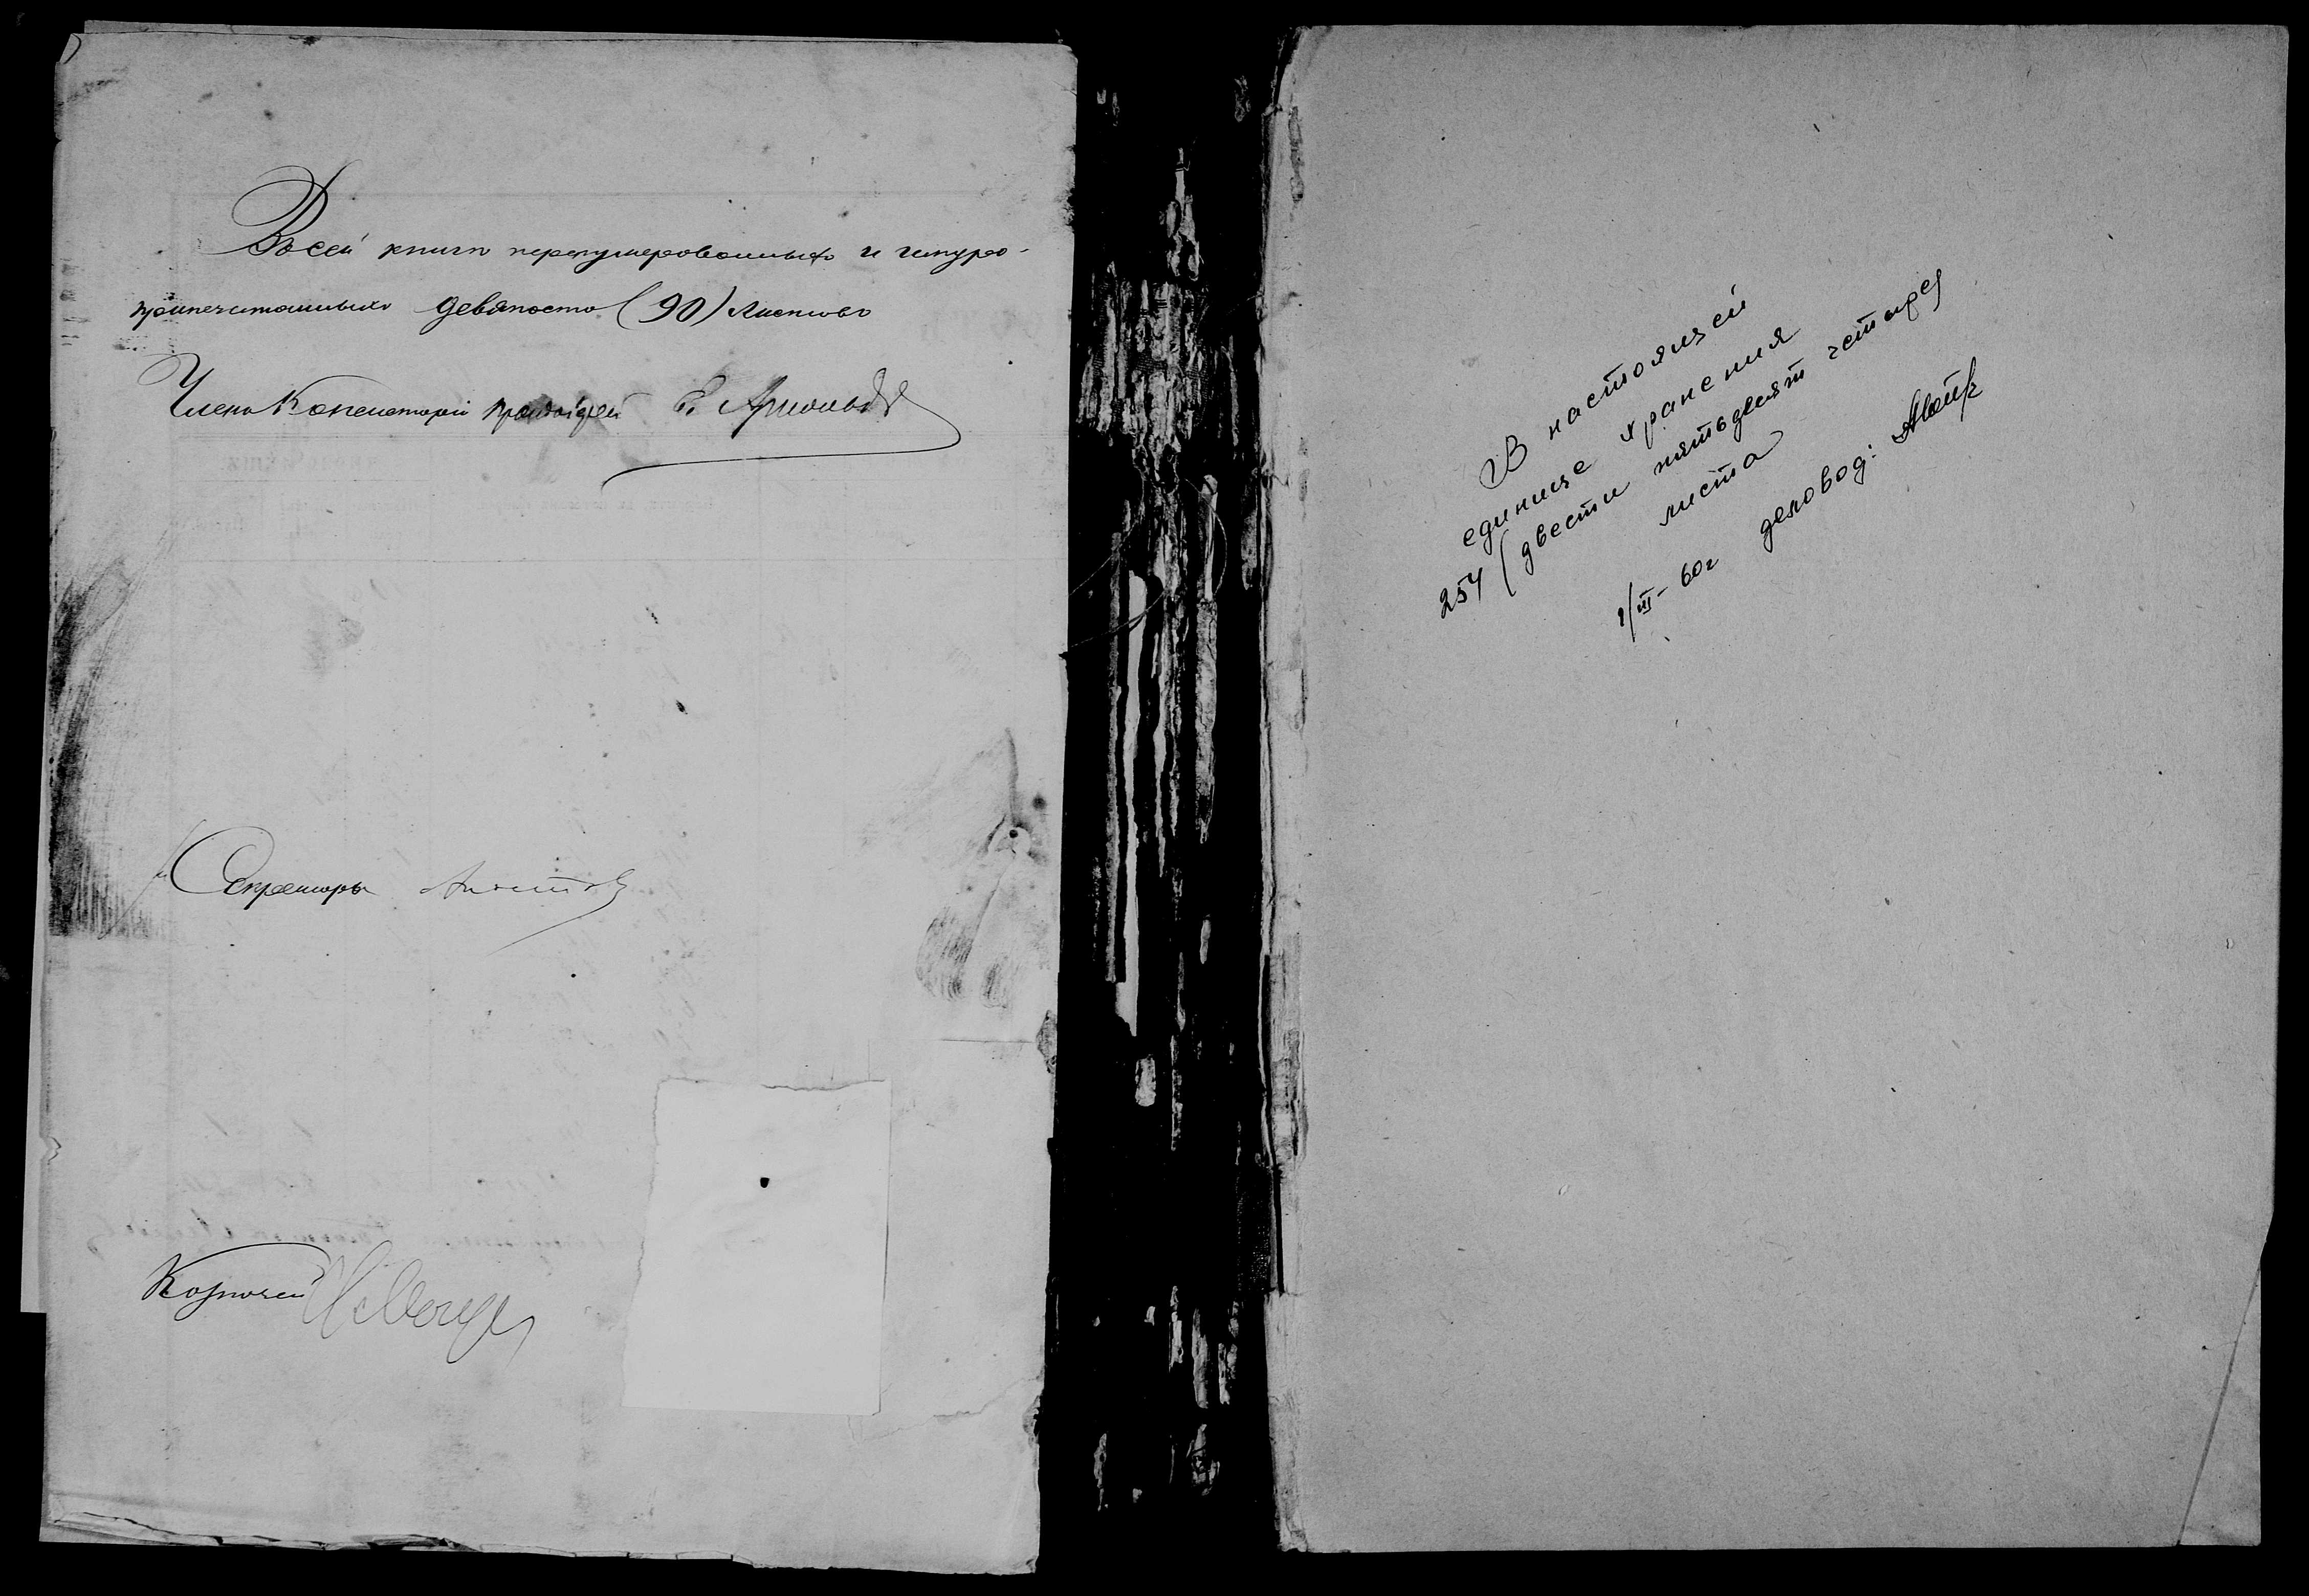 Въ сей книгѣ перенумерованныхъ и шнуро-
припечатанныхъ девяносто (90) листовъ
Членъ Консисторіи Протоіерей Е.
Секретарь
Казначей
В настоящей
единице хранения
254 (двести пятьдесят четыре)
листа
1/III - 60 г деловод: